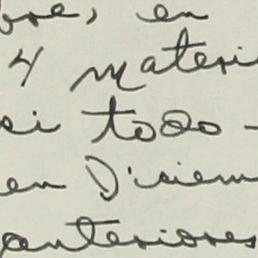 bre, en
4 materi
si todo -
en Diciem
anteriores